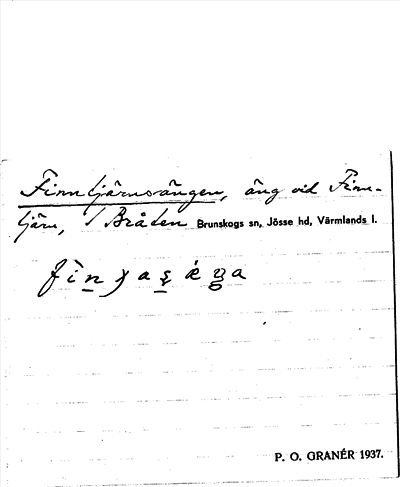 Finntjärnsängen, äng vid Finn-
tjärn, / Bråten Brunskogs sn, Jösse hd, Värmlands l.
P. O. GRANÉR 1937.